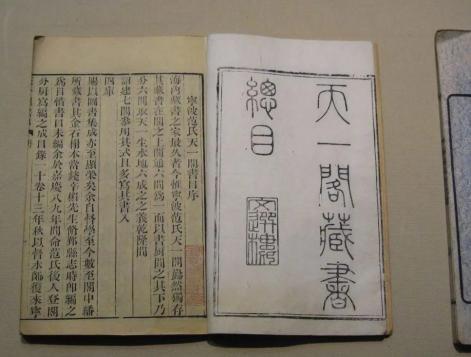 天一閣藏書
總目
文選樓
寧波范氏天一閣書目序
海內藏書之家最久者今惟寧波范氏天一閣巋然獨存
其藏書在閣之上閣通六間爲一而以書厨間之其下乃
分六間取天一生水地六成之之義乾隆間
詔建七閣參用其式且多寫其書入
四庫
賜以圖書集成亦至顯榮矣余自督學至今數至閣中繙
所藏書其金石榻本當錢辛楣先生修鄞縣志時即編之
爲目惜書目未編余於嘉慶八九年間命范氏後人登閣
分厨寫編之成目錄一十卷十三年秋以督水師復來寧